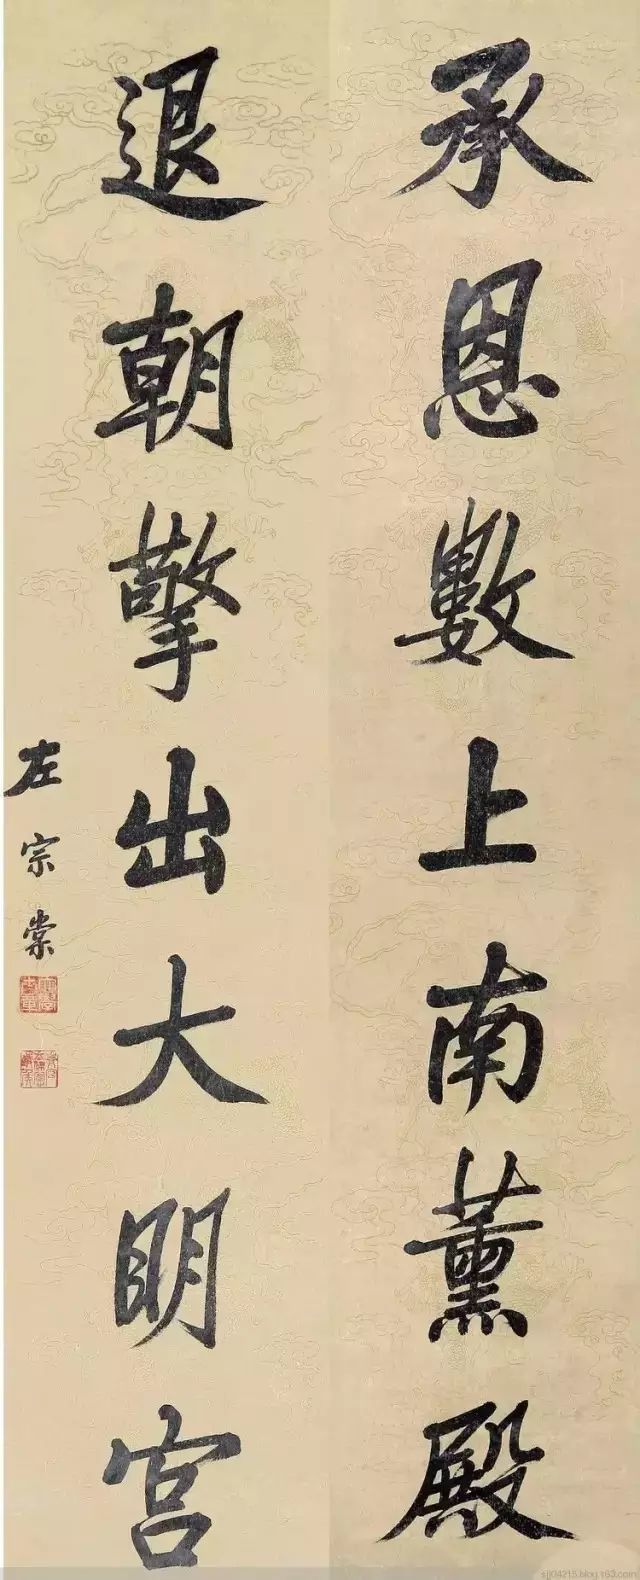 承恩數上南薰殿
退朝擎出大明宫
左宗棠
sjj04215.blog.163.com